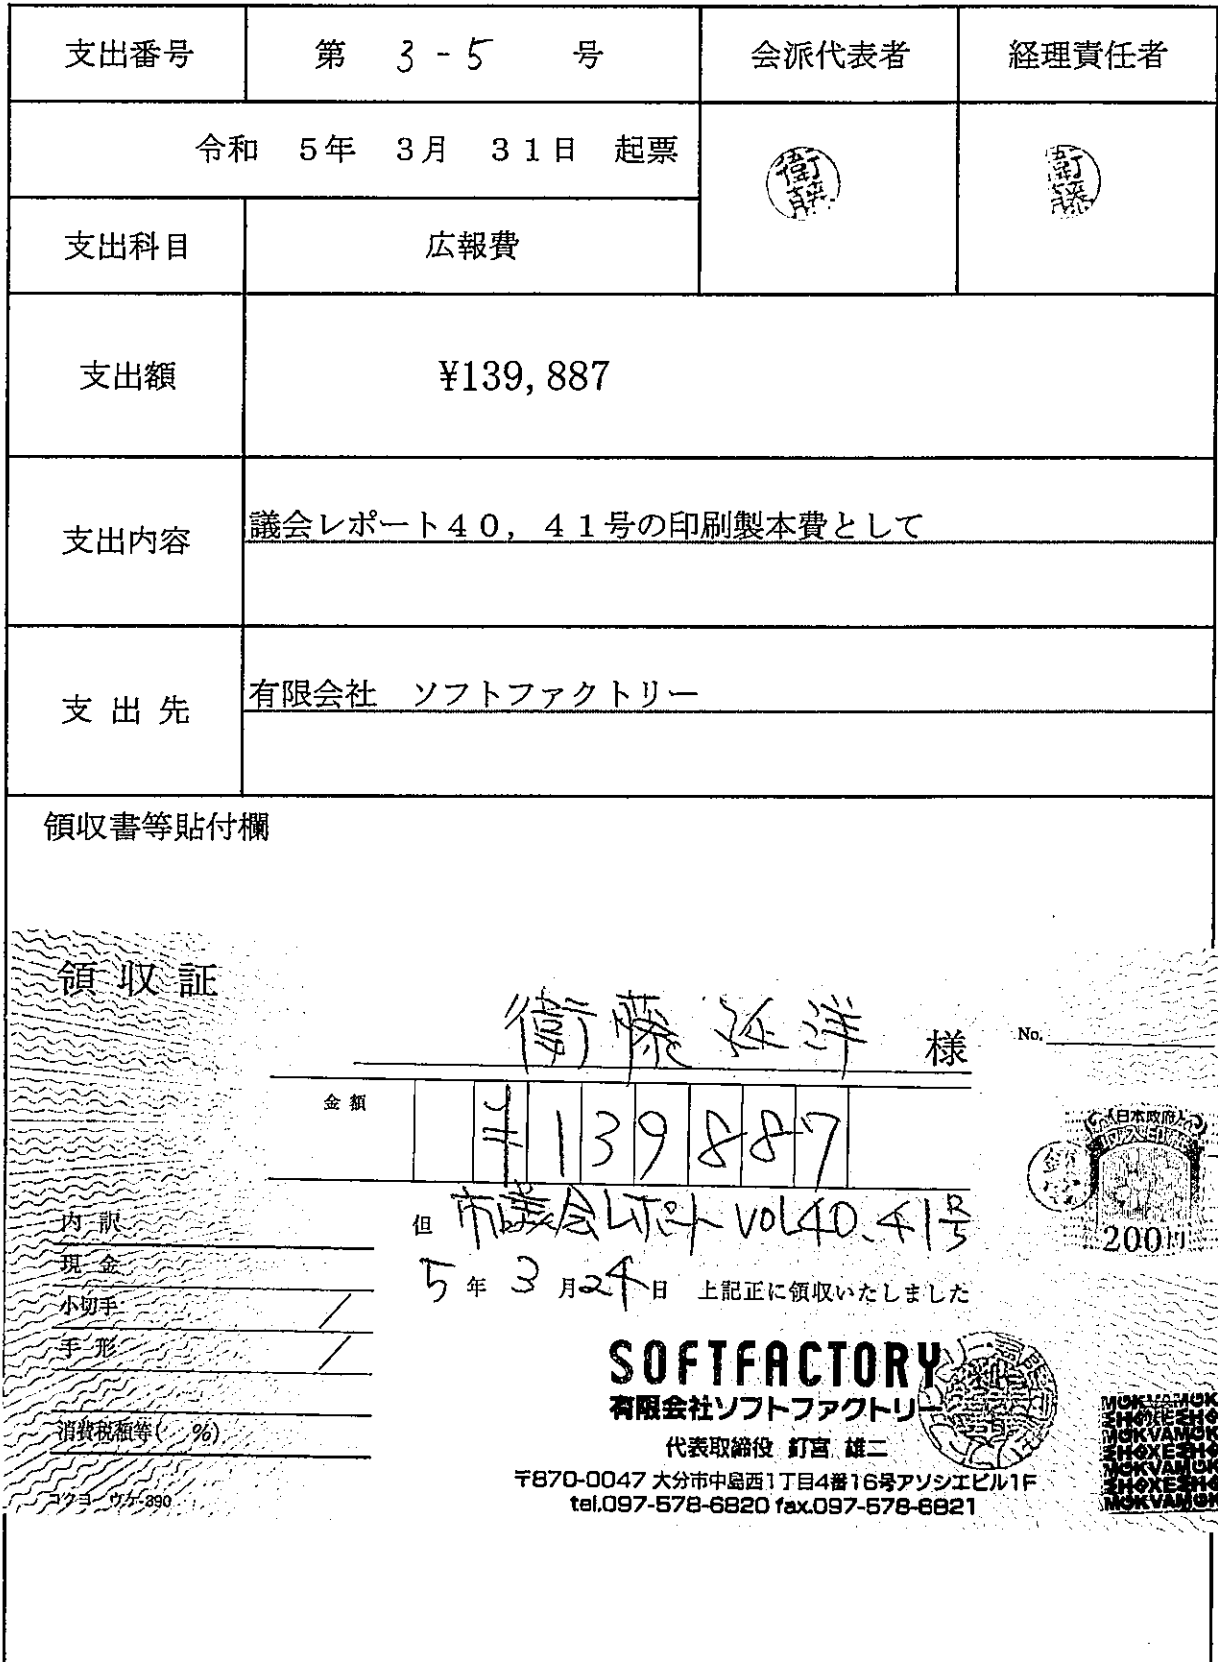 支出番号 第 3-5 号 会派代表者 経理責任者
令和 5年 3月 31日 起票
衛藤 衛藤
支出科目 広報費
支出額 ¥139,887
支出内容 議会レポート40，41号の印刷製本費として
支出先 有限会社 ソフトファクトリー
領収書等貼付欄
領収証
衛藤延洋 様 No.
金額 ¥139887
日本政府
収入印紙
200円
但 市議会レポート vol40.41号
5年3月24日 上記正に領収いたしました
内訳
現金
小切手
手形
消費税額等( %)
コクヨ ウケ-390
SOFTFACTORY
有限会社ソフトファクトリー
代表取締役 釘宮 雄二
〒870-0047 大分市中島西1丁目4番16号アソシエビル1F
tel.097-578-6820 fax.097-578-6821